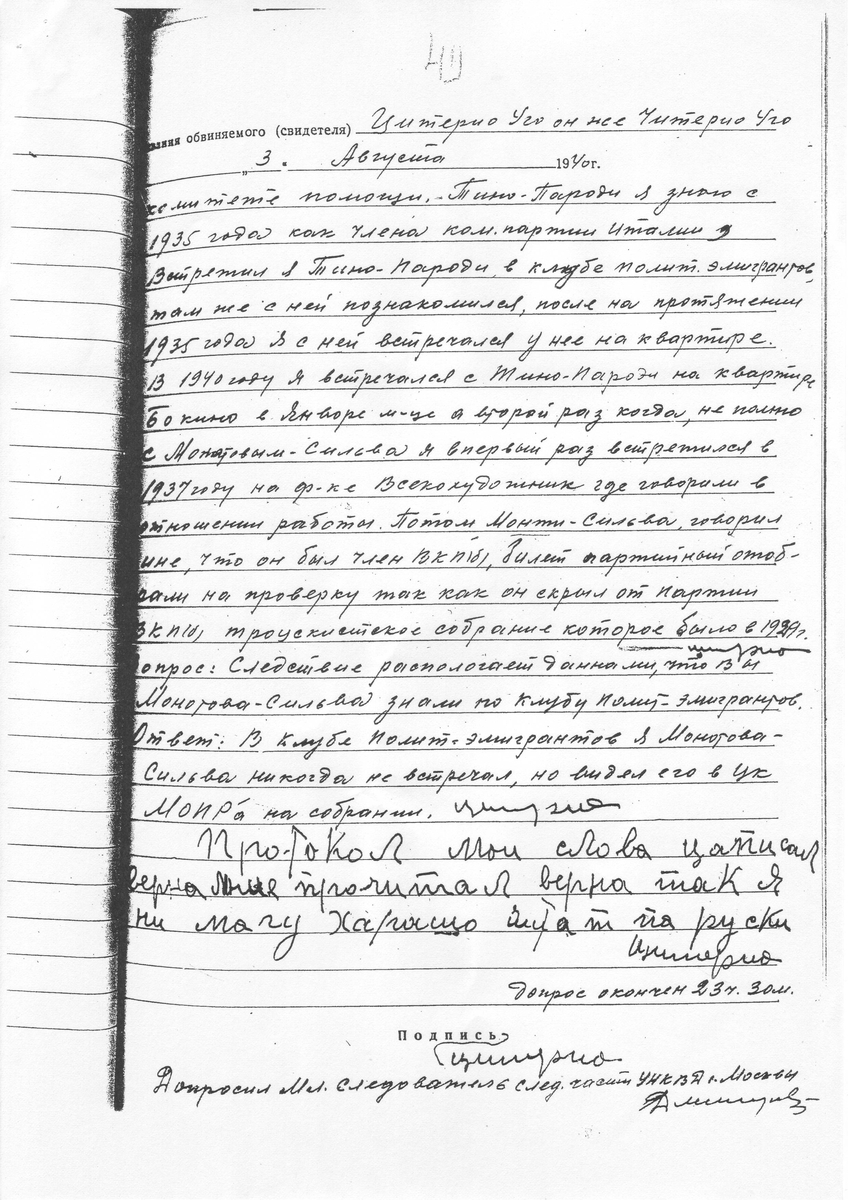 40
зания обвиняемого (свидетеля) Цитерио Уго он же Читерио Уго
„3. Августа 1940г.
комитете помощи. - Тино-Пароди я знаю с
1935 года как члена ком. партии Италии
Встретил я Тино-Пароди, в клубе полит. эмигрантов,
там же с ней познакомился, после на протяжении
1935 года я с ней встречался у нее на квартире.
В 1940 году я встречался с Тино-Пароди на квартире
Бокино в Январе м-це а второй раз когда, не помню
с Монотовым-Сильва я впервый раз встретился в
1937 году на ф-ке Всекохудожник где говорили в
отношении работы. Потом Монти-Сильва, говорил
мне, что он был член ВКП(б), билет партийный отоб-
рали на проверку так как он скрыл от Партии
ВКП(б) троцкистское собрание которое было в 1929г.
цитерио
Вопрос: Следствие распологает данными, что Вы
Монотова-Сильва знали по Клубу Полит-эмигрантов.
Ответ: В клубе Полит-эмигрантов я Монотова-
Сильва никогда не встречал, но видел его в ЦК
МОПРа на собрании. цитерио
Протокол мои слова цаписал
верна мние прочитал верна так я
ни магу харашо читат па руски
Цитерио
Допрос окончен 23ч. 30м.
Подпись
цитерио
Допросил Мл. Следователь след. части УНКВД г. Москвы